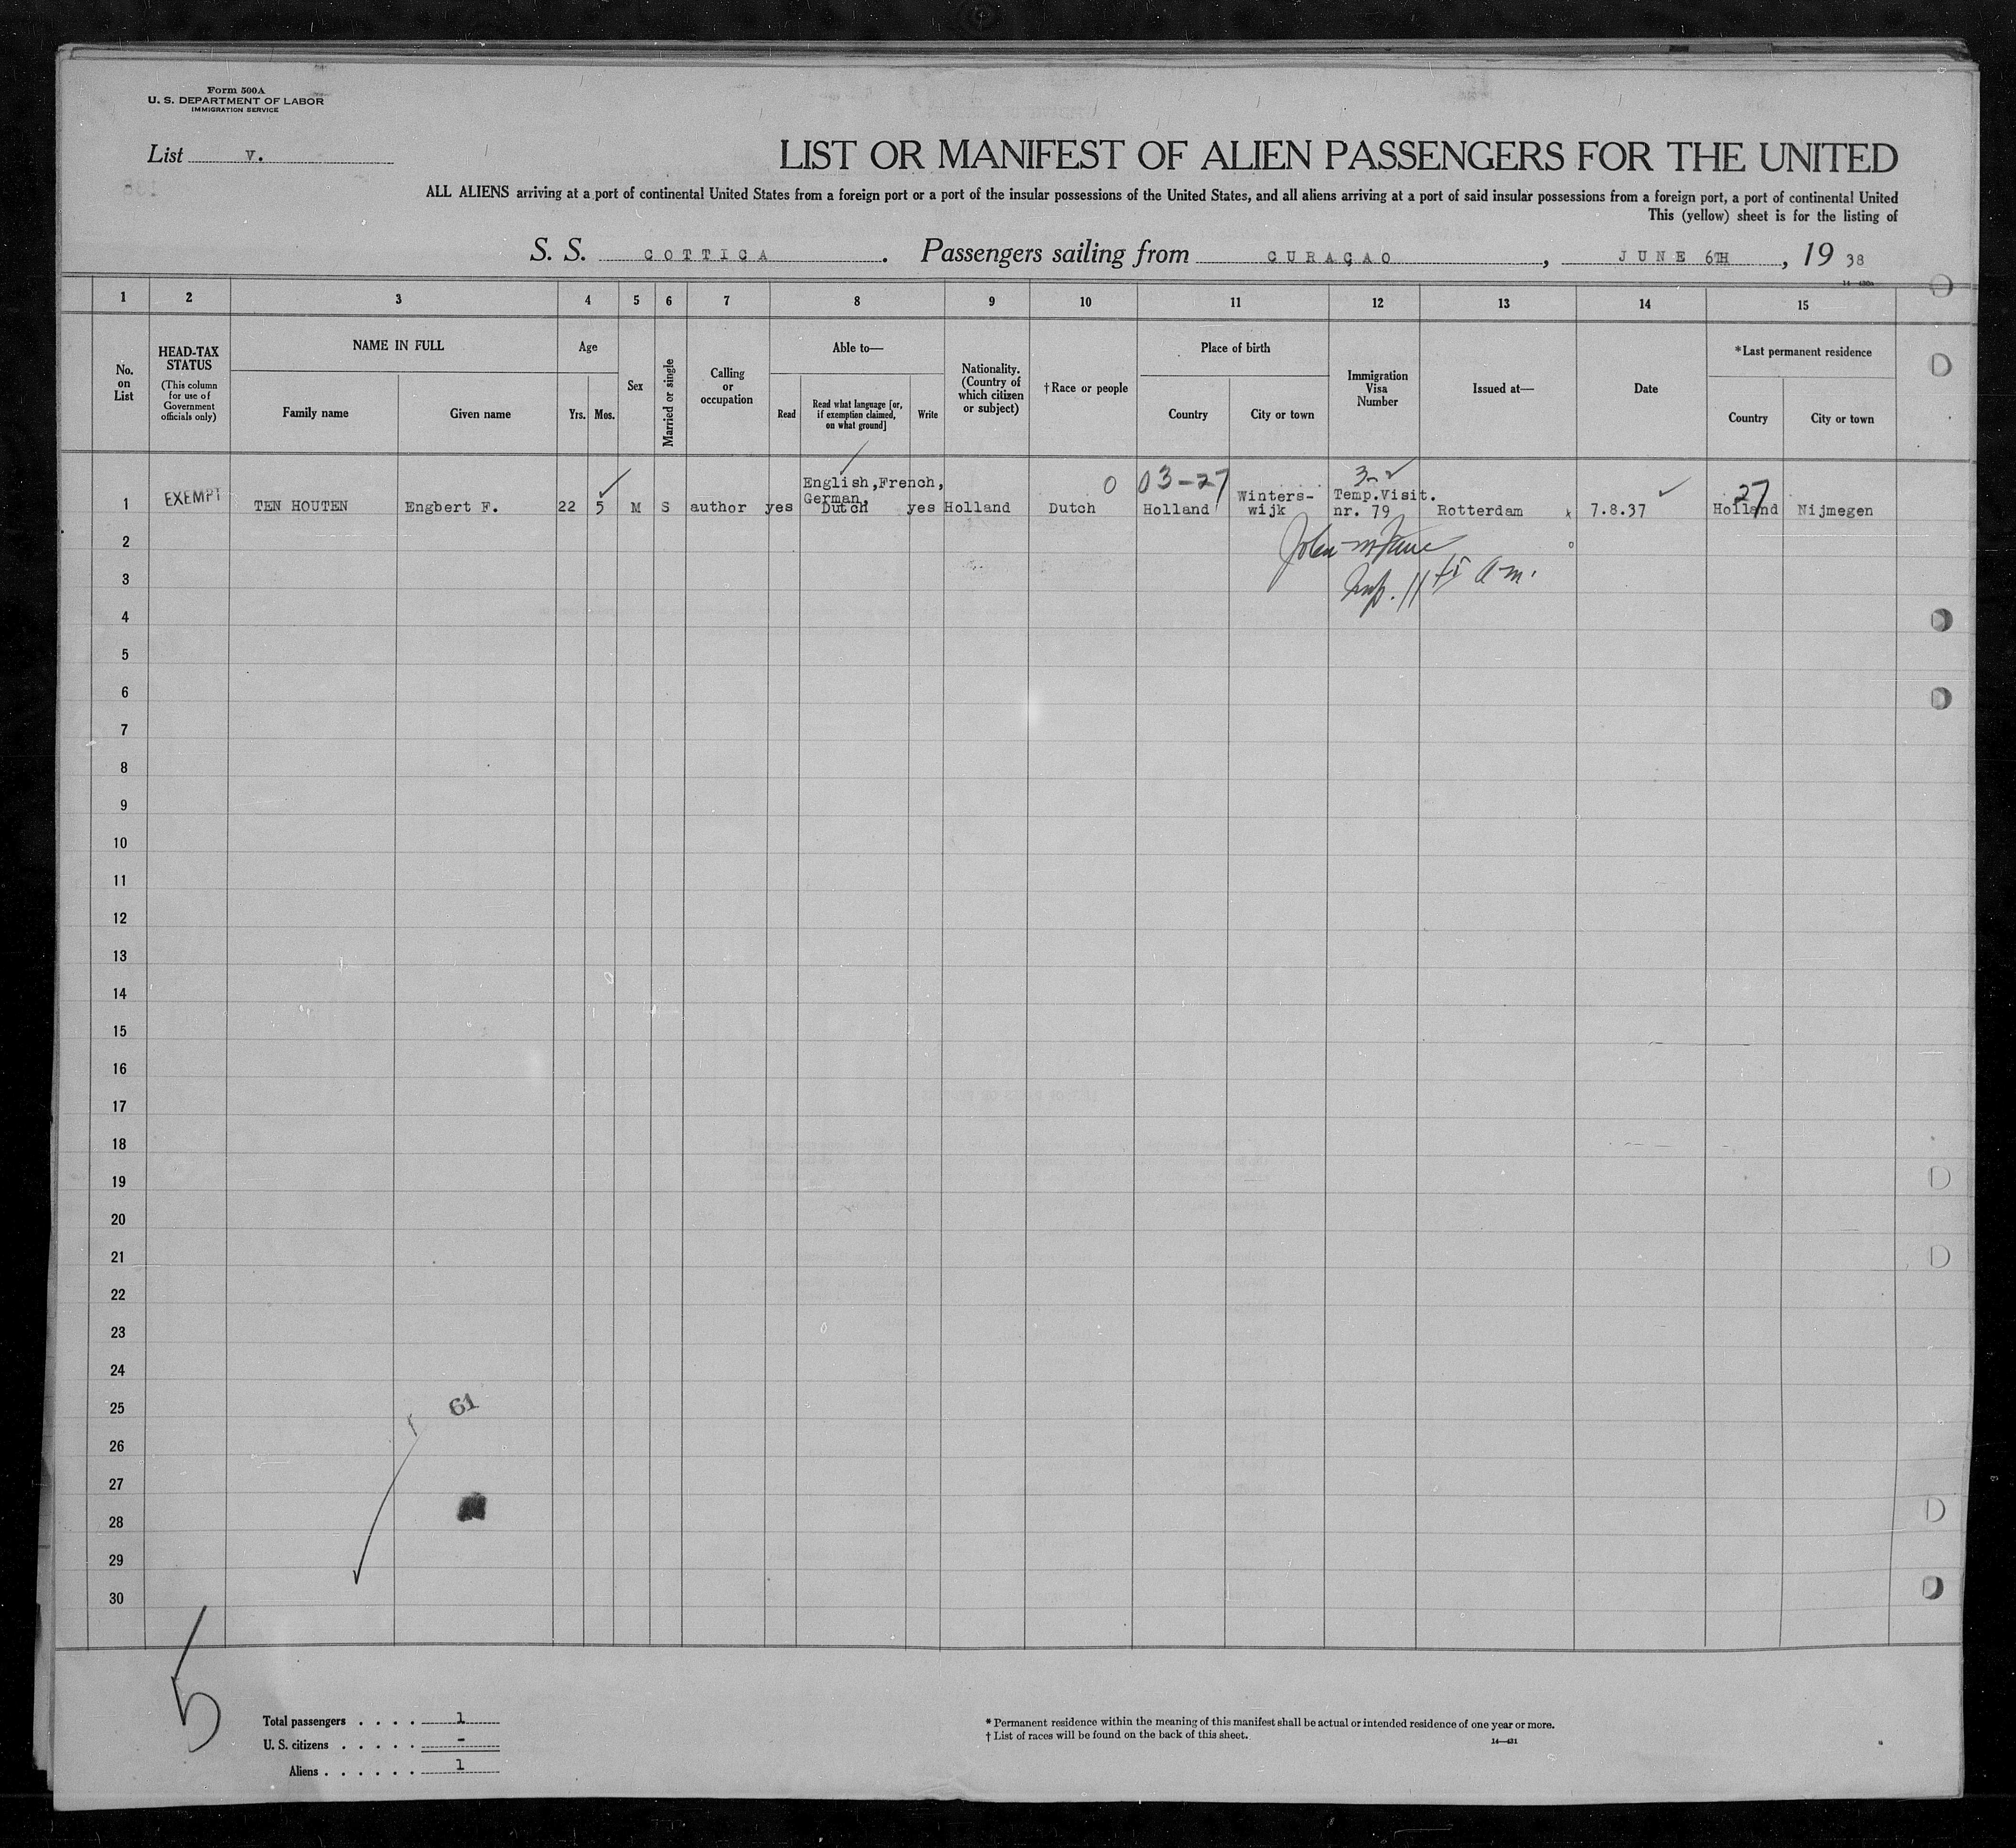 Form 500A
U. S. DEPARTMENT OF LABOR
IMMIGRATION SERVICE
List v.
LIST OR MANIFEST OF ALIEN PASSENGERS FOR THE UNITED
ALL ALIENS arriving at a port of continental United States from a foreign port or a port of the insular possessions of the United States, and all aliens arriving at a port of said insular possessions from a foreign port, a port of continental United
This (yellow) sheet is for the listing of
S. S. COTTICA. Passengers sailing from CURAÇAO, JUNE 6TH, 19 38
1 2 3 4 5 6 7 8 9 10 11 12 13 14 15
No. on List
HEAD-TAX STATUS
(This column for use of Government officials only)
NAME IN FULL
Family name
Given name
Age
Yrs. Mos.
Sex
Married or single
Calling or occupation
Able to—
Read
Read what language [or, if exemption claimed, on what ground]
Write
Nationality. (Country of which citizen or subject)
†Race or people
Place of birth
Country
City or town
Immigration Visa Number
Issued at—
Date
*Last permanent residence
Country
City or town
0 03-27 3-2 27
1 EXEMPT TEN HOUTEN Engbert F. 22 5 M S author yes English,French, German, Dutch yes Holland Dutch Holland Winters-wijk Temp.Visit. nr. 79 Rotterdam 7.8.37 Holland Nijmegen
2 John
3
4
5
6
7
8
9
10
11
12
13
14
15
16
17
18
19
20
21
22
23
24
25 61
26
27
28
29
30
5
Total passengers . . . . 1
U. S. citizens . . . . . -
Aliens . . . . . . 1
* Permanent residence within the meaning of this manifest shall be actual or intended residence of one year or more.
† List of races will be found on the back of this sheet.
14—431